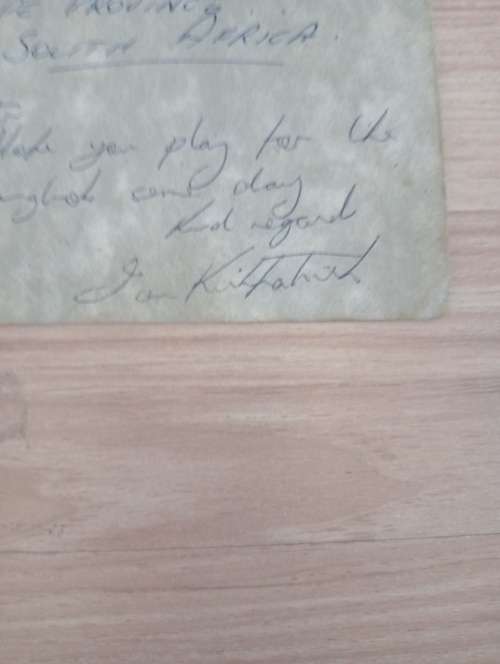 PE PROVINCE
SOUTH AFRICA.
Hope you play for the
some day
Kind regard
Ian Kirkpatrick